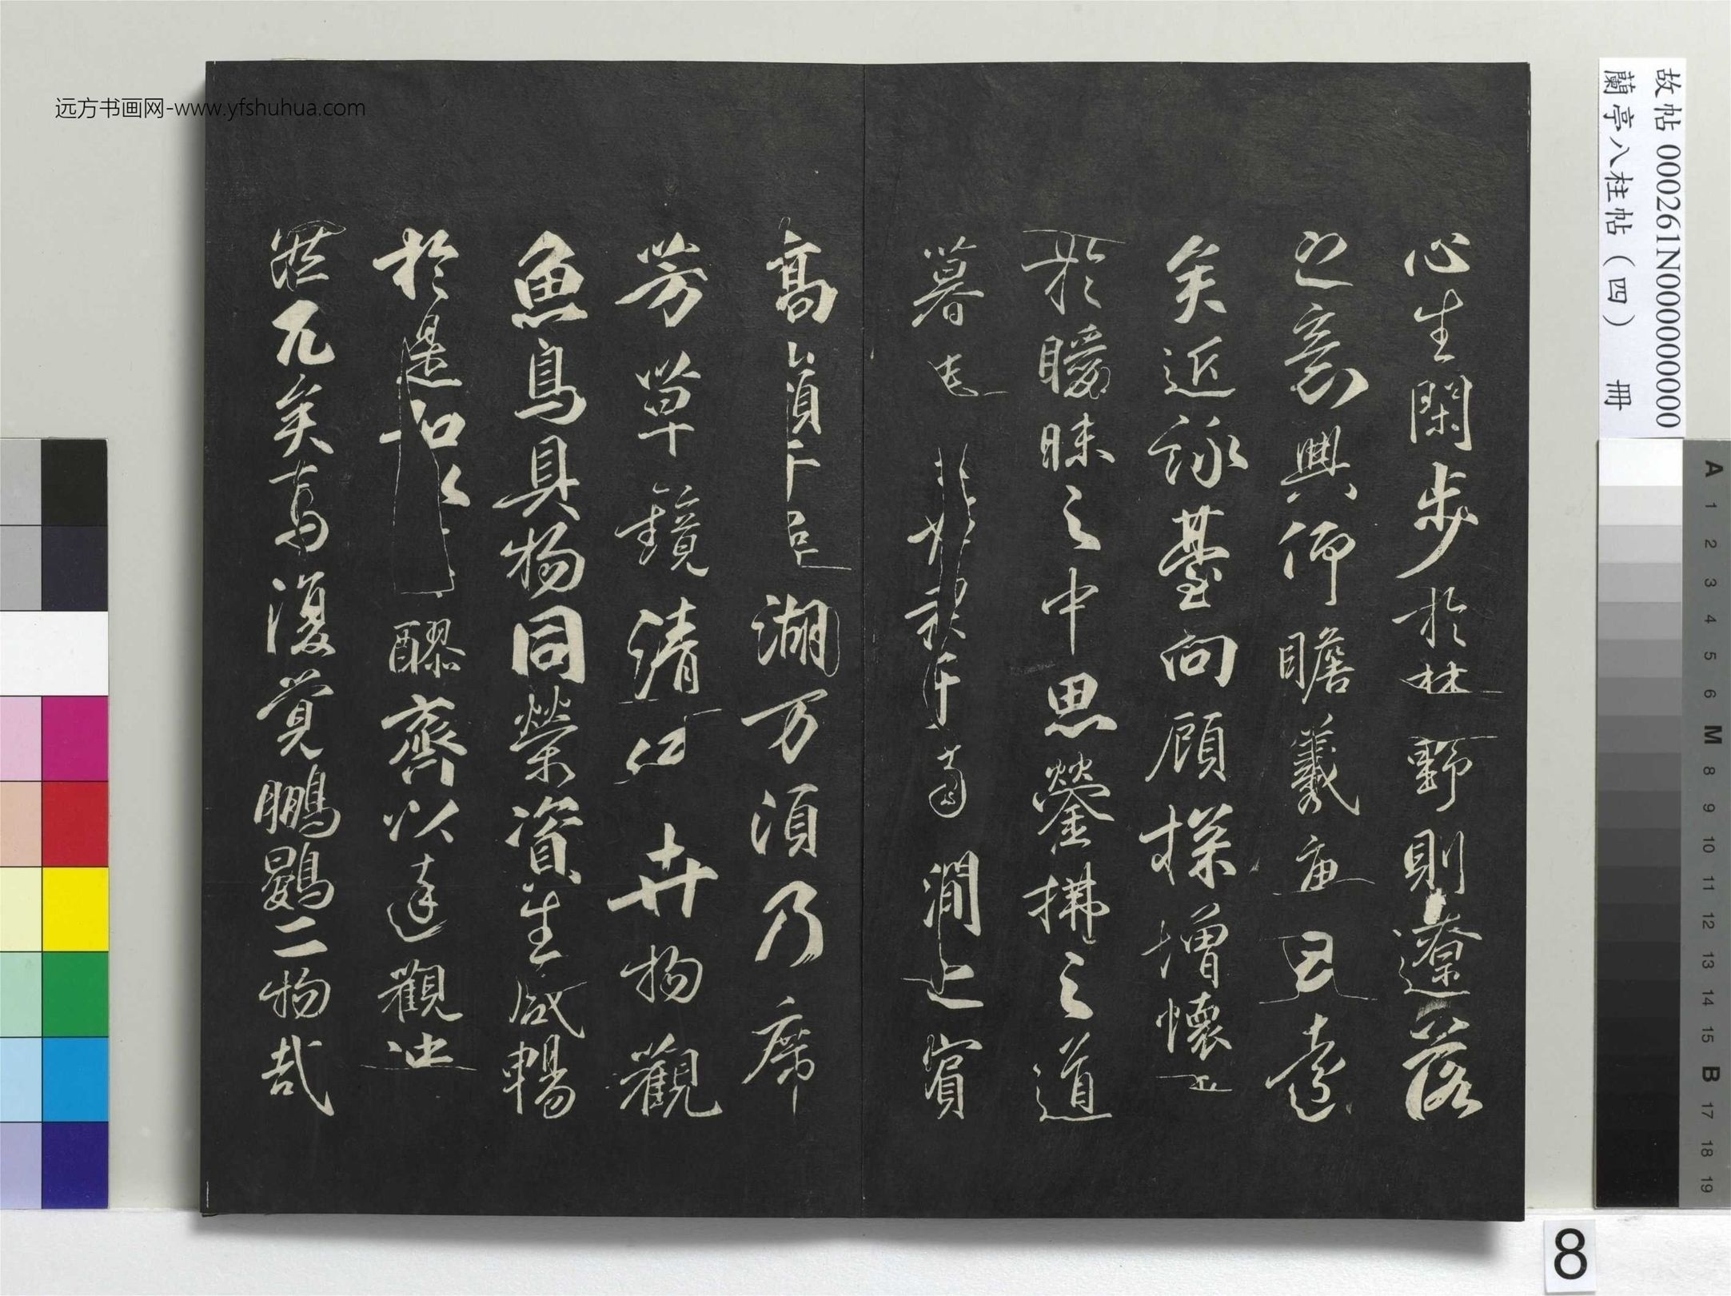 心生閑步於林野則遼落
之意興仰瞻羲唐邈已遠
矣近詠臺向顧探增懷
於曖昧之中思縈拂之道
暮
澗之濱
高
湖万須乃席
芳草鏡清 卉物觀
魚鳥具物同榮資生咸暢
於是和以醪齊以達觀
然兀矣焉復覺鵬鷃二物哉
故帖 000261N000000000
蘭亭八柱帖(四) 冊
远方书画网-www.yfshuhua.com
A
1
2
3
4
5
6
M
8
9
10
11
12
13
14
15
B
17
18
19
8